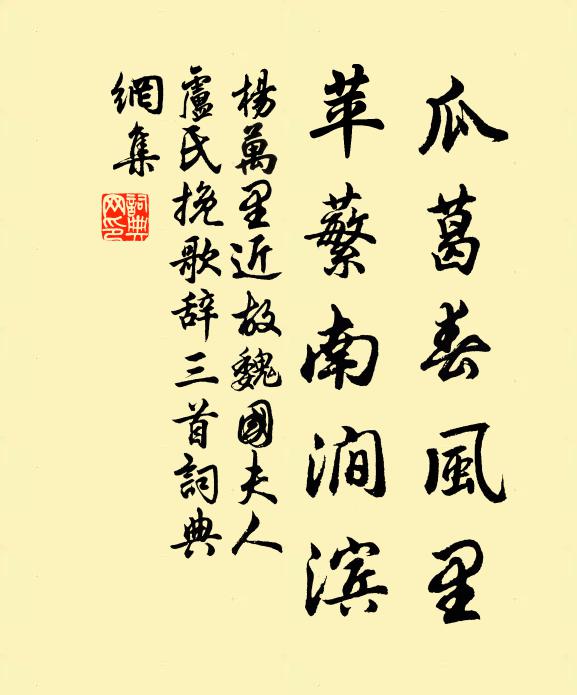 瓜葛春風里
苹蘩南澗滨
楊萬里近故魏國夫人
盧氏挽歌辞三首詞典
網集
詞典
网印